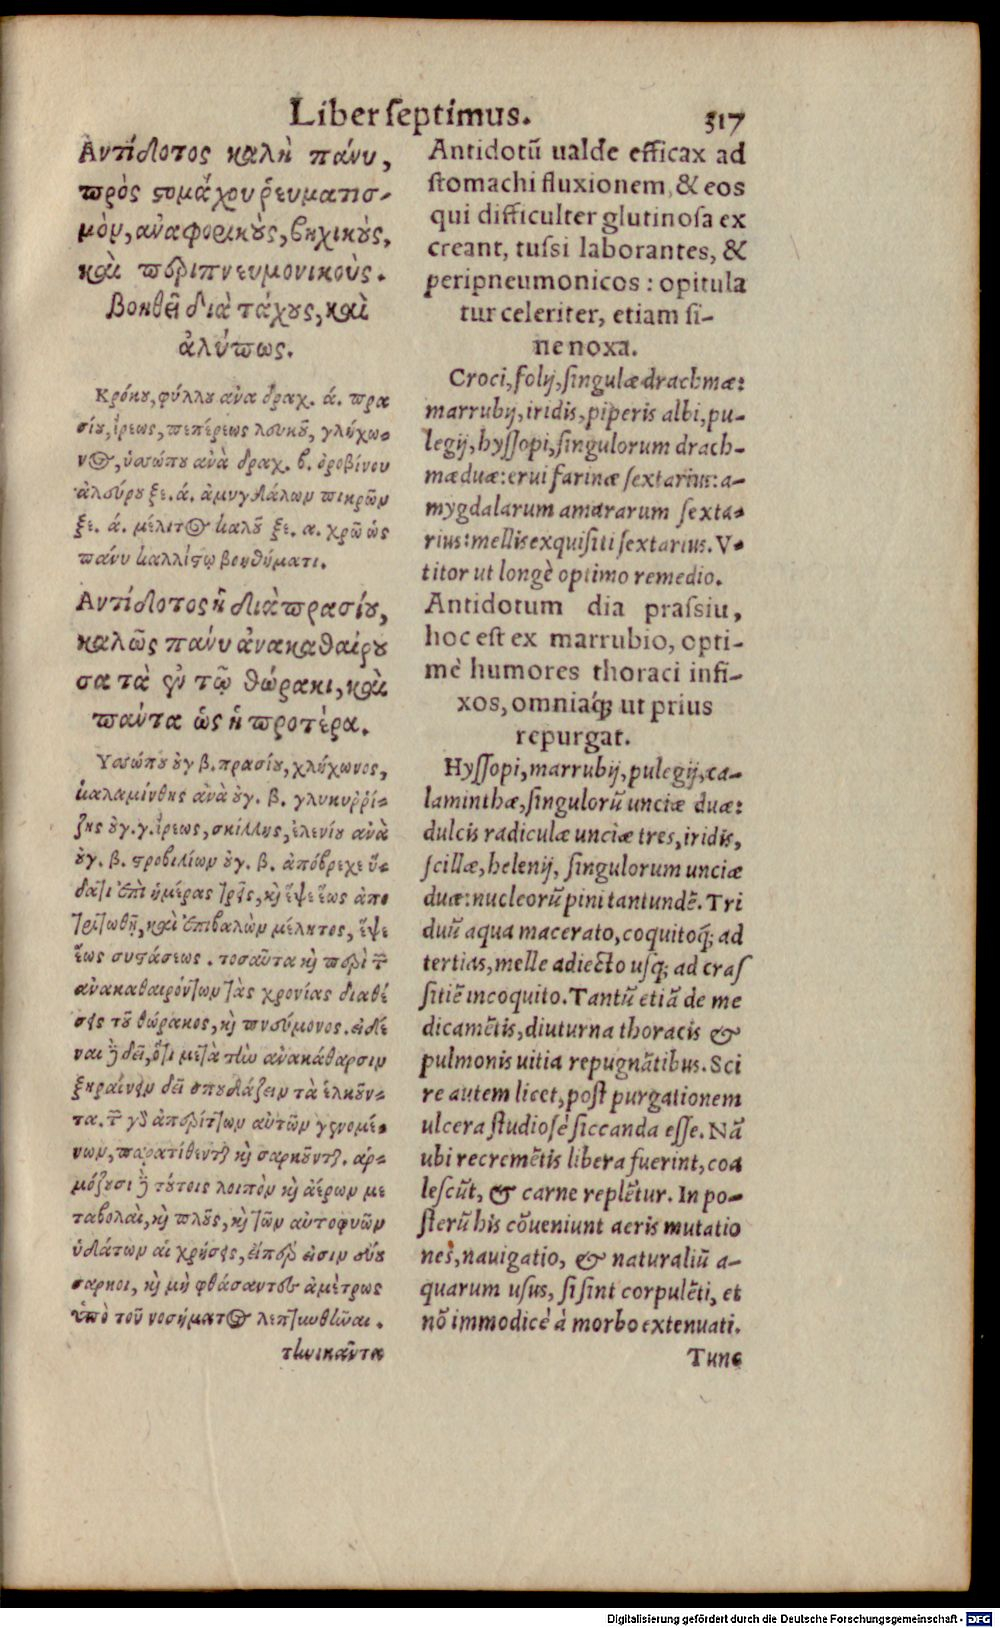 Liber septimus. 317
Ἀντίδοτος καλὴ πάνυ,
πρὸς στομάχου ῥευματισ-
μὸν, ἀναφορικοὺς, βηχικοὺς,
καὶ περιπνευμονικοὺς.
βοηθεῖ διὰ τάχους, καὶ
ἀλύπως.
Κρόκου, φύλλου ἀνα δραχ. ά. πρα
σίου, ἴρεως, πεπέρεως λευκοῦ, γλήχω-
νος, ὑσώπου ἀνὰ δραχ. β. ὀροβίνου
ἀλεύρου ξε. ά. ἀμυγδάλων πικρῶν
ξε. ά. μέλιτος καλοῦ ξε. α. χρῶ ὡς
πάνυ καλλίστῳ βοηθήματι.
Ἀντίδοτος ἡ διὰ πρασίου,
καλῶς πάνυ ἀνακαθαίρου
σα τὰ ἐν τῷ θώρακι, καὶ
παύτα ὡς ἡ προτέρα.
Ὑσώπου οὐγ β. πρασίου, χλήχωνος,
καλαμίνθης ἀνὰ οὐγ. β. γλυκυῤῥί-
ζης οὐγ. γ. ἴρεως, σκίλλης, ἑλενίου ἀνὰ
οὐγ. β. στροβιλίων οὐγ. β. ἀπόβρεχε ὕ-
δατι ἐπὶ ἡμέρας τρεῖς, καὶ ἕψε ἕως ἀπο
τριτωθῇ, καὶ ἐπιβαλὼν μέλητος, ἕψε
ἕως συστάσεως. τοσαῦτα καὶ περὶ τῶν
ἀνακαθαιρόντων τὰς χρονίας διαθέ
σεις τοῦ θώρακος, καὶ πνεύμονος. εἰδέ
ναι δὲ δεῖ, ὅτι μετὰ τὴν ἀνακάθαρσιν
ξηραίνειν δεῖ σπουδάζειν τὰ ἑλκοῦν-
τα. τῶν γὰρ ἀπερίττων αὐτῶν γενομέ-
νων, παρατίθενται καὶ σαρκοῦνται. ἁρ-
μόζουσι δὲ τούτοις λοιπὸν καὶ ἀέρων με
ταβολαὶ, καὶ πλοῦς, καὶ τῶν αὐτοφυῶν
ὑδάτων αἱ χρήσεις, εἴπερ εἰσιν εὔσ
σαρκοι, καὶ μὴ φθάσαντες ἀμέτρως
ὑπὸ τοῦ νοσήματος λεπτυνθῆναι.
τηνικαῦτα
Antidotū ualde efficax ad
stomachi fluxionem, & eos
qui difficulter glutinosa ex
creant, tussi laborantes, &
peripneumonicos: opitula
tur celeriter, etiam si-
ne noxa.
Croci, folij, singulæ drachmæ:
marrubij, iridis, piperis albi, pu-
legij, hyssopi, singulorum drach-
mæ duæ: erui farinæ sextarius: a-
mygdalarum amararum sexta-
rius: mellis exquisiti sextarius. V-
titor ut longè optimo remedio.
Antidotum dia prassiu,
hoc est ex marrubio, opti-
mè humores thoraci infi-
xos, omniaq́; ut prius
repurgat.
Hyssopi, marrubij, pulegij, ca-
laminthæ, singulorū unciæ duæ:
dulcis radiculæ unciæ tres, iridis,
scillæ, helenij, singulorum unciæ
duæ: nucleorū pini tantundē. Tri
duū aqua macerato, coquitoq́; ad
tertias, melle adiecto usq; ad cras
sitiē incoquito. Tantū etiā de me
dicamētis, diuturna thoracis &
pulmonis uitia repugnātibus. Sci
re autem licet, post purgationem
ulcera studiosè siccanda esse. Nā
ubi recremētis libera fuerint, coa
lescūt, & carne replētur. In po-
sterū his cōueniunt aeris mutatio
nes, nauigatio, & naturaliū a-
quarum usus, si sint corpulēti, et
nō immodicè à morbo extenuati.
Tunc
Digitalisierung gefördert durch die Deutsche Forschungsgemeinschaft - DFG